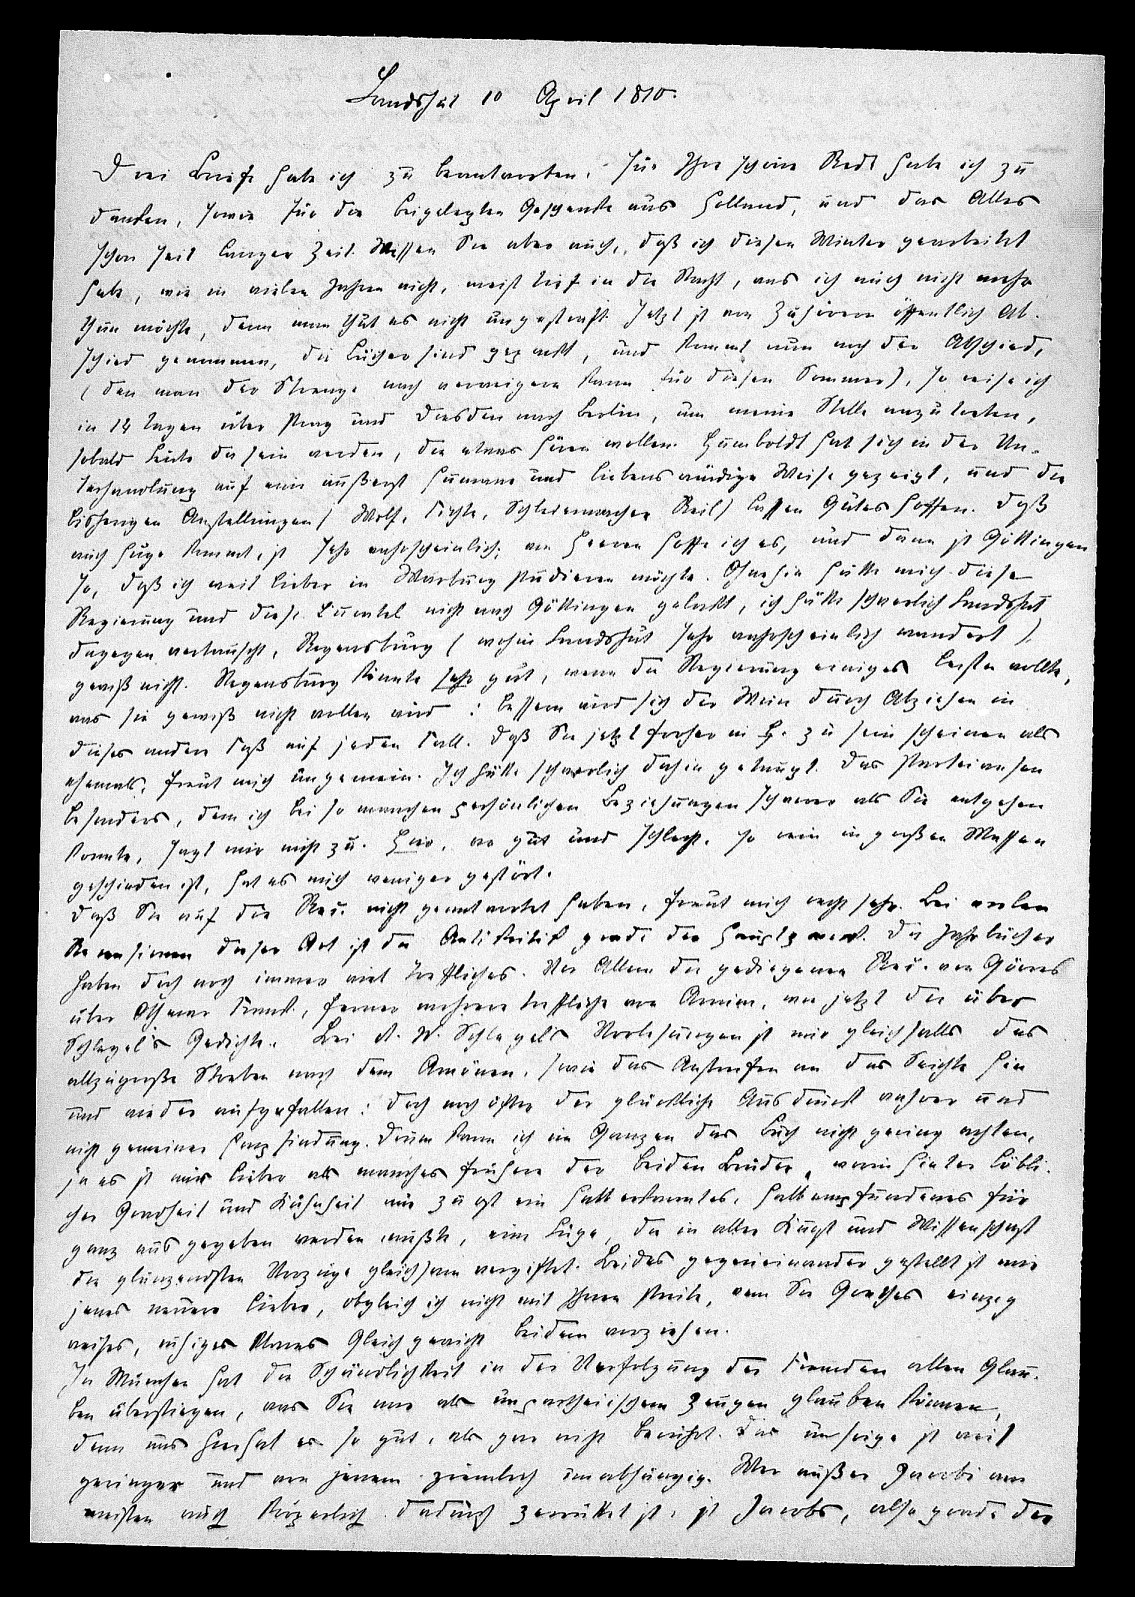 Landshut 10 April 1810.
Drei Briefe habe ich zu beantworten. Für Ihre schöne Rede habe ich zu
danken, sowie für die beigelegten Geschenke aus Holland, und das Alles
schon seit langer Zeit. Wissen Sie aber auch, daß ich diesen Winter gearbeitet
habe, wie in vielen Jahren nicht, meist tief in die Nacht, was ich auch nicht mehr
thun möchte, denn man thut es nicht ungestraft. Jetzt ist von Zuhörern öffentlich Ab-
schied genommen, die Bücher sind gepackt, und kommt nun noch der Abschied,
(den man der Strenge nach verweigern kann für diesen Sommer), so reise ich
in 14 Tagen über Prag und Dresden nach Berlin, um meine Stelle anzutreten,
sobald Leute da sein werden, die etwas hören wollen. Humboldt hat sich in der Un-
terhandlung auf eine äußerst humane und liebenswürdige Weise gezeigt, und die
bisherigen Anstellungen (Wolf, Fichte, Schleiermacher Reil) lassen Gutes hoffen. Daß
auch Hugo kommt, ist sehr wahrscheinlich; von Heeren hoffe ich es, und dann ist Göttingen
so, daß ich weit lieber in Marburg studieren möchte. Ohnehin hätte mich diese
Regierung und diese nicht nach Göttingen gelockt, ich hätte schwerlich Landshut
dagegen vertauscht, Regensburg (wohin Landshut sehr wahrscheinlich wandert)
gewiß nicht. Regensburg könnte sehr gut, wenn die Regierung einiges leisten wollte,
was sie gewiß nicht wollen wird: bessern wird sich der Wein durch Abziehen in
dieses andere Faß auf jeden Fall. Daß Sie jetzt froher in H. zu sein scheinen als
ehemals, freut mich ungemein. Ich hätte schwerlich dahin getaugt. Das Parteiwesen
besonders, dem ich bei so manchen persönlichen Beziehungen schwerer als Sie entgehen
konnte, sagt mir nicht zu. Hier, wo gut und schlecht, so rein in großen Massen
geschieden ist, hat es mich weniger gestört.
Daß Sie auf die Rec. nicht geantwortet haben, freut mich recht sehr. Bei vielen
Recensionen dieser Art ist die Antikritik grade der Hauptzweck. Die Jahrbücher
haben doch noch immer viel treffliches. Vor Allem die gediegenen Rec. von Görres
über Othmar Frank, ferner mehrere treffliche von Arnim, wie jetzt die über
Schlegel's Gedichte. Bei A. W. Schlegels Vorlesungen ist mir gleichfalls das
allzugroße Streben nach dem Amönen, sowie das Anstreifen an das Seichte hin
und wieder aufgefallen: doch noch öfter der glückliche Ausdruck wahrer und
nicht gemeiner Empfindung. Drum kann ich im Ganzen das Buch nicht gering achten,
ja es ist mir lieber als manches frühere der beiden Brüder, worin hinter löbli-
cher Gradheit und Kühnheit nur zu oft ein halb erkanntes, halb empfundenes für
ganz ausgegeben werden mußte, eine Lüge, die in aller Kunst und Wissenschaft
die glänzendsten Vorzüge gleichsam vergiftet. Beides gegeneinander gestellt ist mir
jenes neuere lieber, obgleich ich nicht mit Ihnen streite, wenn Sie Goethes einzig
weises, ruhiges klares Gleichgewicht beidem vorziehen.
In München hat die Schändlichkeit in der Verfolgung der Fremden allen Glau-
ben überstiegen, was Sie mir als unpartheiischem Zeugen glauben können,
denn uns hier hat es so gut, als gar nicht berührt. Das unsrige ist weit
geringer und von jenem ziemlich unabhängig. Wer außer Jacobi am
meisten auch körperlich dadurch zerrüttet ist, ist Jacobs, also grade der